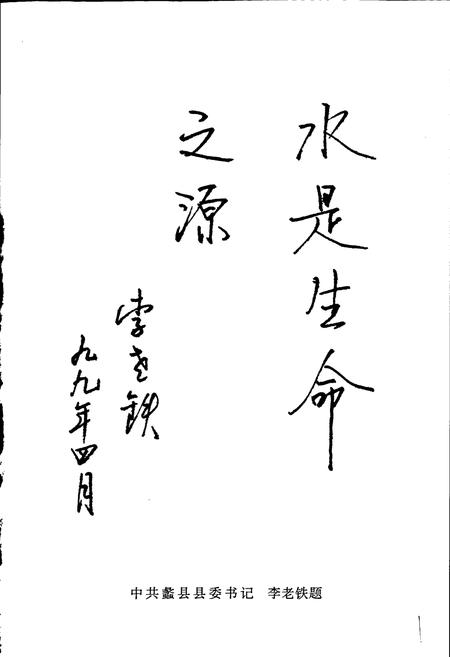 水是生命
之源
李老铁
九九年四月
中共蠡县县委书记 李老铁题